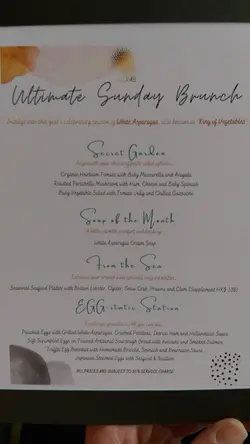 Ultimate Sunday Brunch
Indulge with White Asparagus, also known as "King of Vegetables"
Secret Garden
Organic Heirloom Tomato with Baby Mozzarella and Arugula
Roasted Portobello Mushroom with Onions and Baby Spinach
Baby Vegetable Salad with Tomato Jelly and Chilled Gazpacho
Soup of the Month
White Asparagus Cream Soup
From the Sea
Seasonal Seafood Platter with Boston Lobster, Oyster, Snow Crab, Prawns and Clam (Supplement HK$ 120)
EGG-static Station
Poached Eggs with Grilled White Asparagus, Crushed Potatoes, Parma Ham and Hollandaise Sauce
Soft Scrambled Eggs on Toasted Artisanal Sourdough Bread with Avocado and Smoked Salmon
Truffle Egg Benedict with Homemade Brioche, Spinach and Béarnaise Sauce
Japanese Steamed Eggs with Seafood & Scallion
ALL PRICES ARE SUBJECT TO 10% SERVICE CHARGE